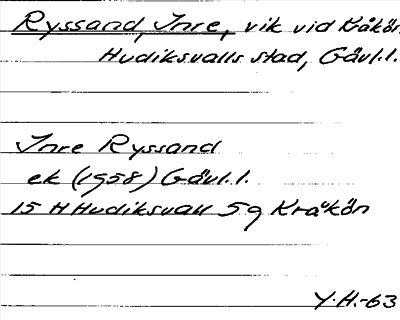 Ryssand, Inre, vik vid Kråkön
Hudiksvalls stad, Gävl.l.
Inre Ryssand
ek (1958) Gävl.l.
15 H Hudiksvall 5 g Kråkön
Y.H.-63